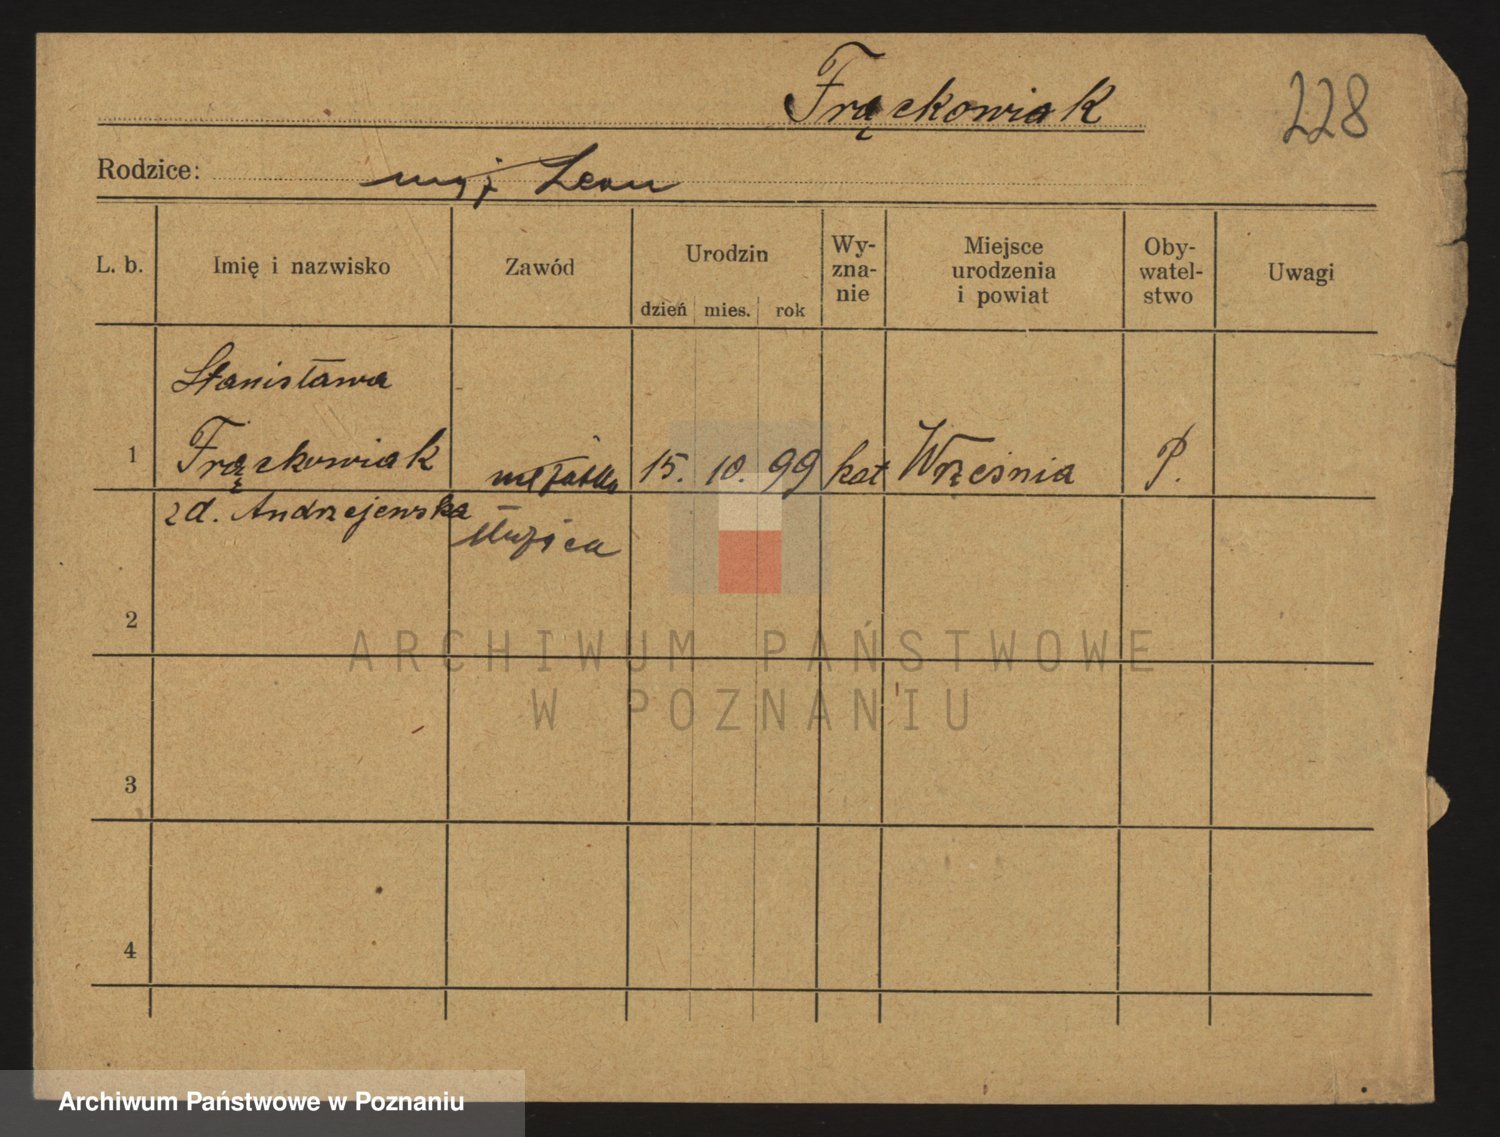 Frąckowiak
228
Rodzice: mąż Leon
L. b. Imię i nazwisko Zawód Urodzin dzień mies. rok Wy-zna-nie Miejsce urodzenia i powiat Oby-watel-stwo Uwagi
Stanisława
1 Frąckowiak mężatka 15. 10. 99 kat Września P.
zd. Andrzejewska
służąca
2
ARCHIWUM PAŃSTWOWE
W POZNANIU
3
4
Archiwum Państwowe w Poznaniu